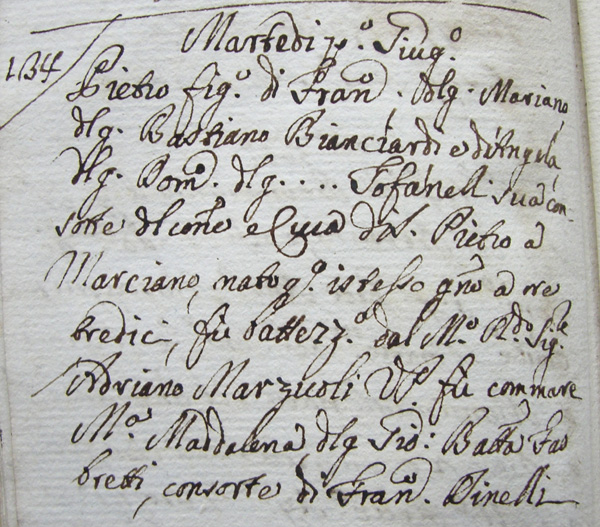 Martedi p.º Giug.º
1134
Pietro fig.º di Fran.º dlg. Mariano
dlg. Bastiano Bianciardi e di Angela
dlg. Dom.º dlg. .... Tofanelli sua con-
sorte del com.e e Cura di S. Pietro a
Marciano, nato q.º istesso gno a ore
tredici, fù battezz.º dal M.º R.do Sig.re
Adriano Marzuoli fù commare
M.a Maddalena dlg Gio: Batta Fab
bretti, consorte di Fran.º Pinelli